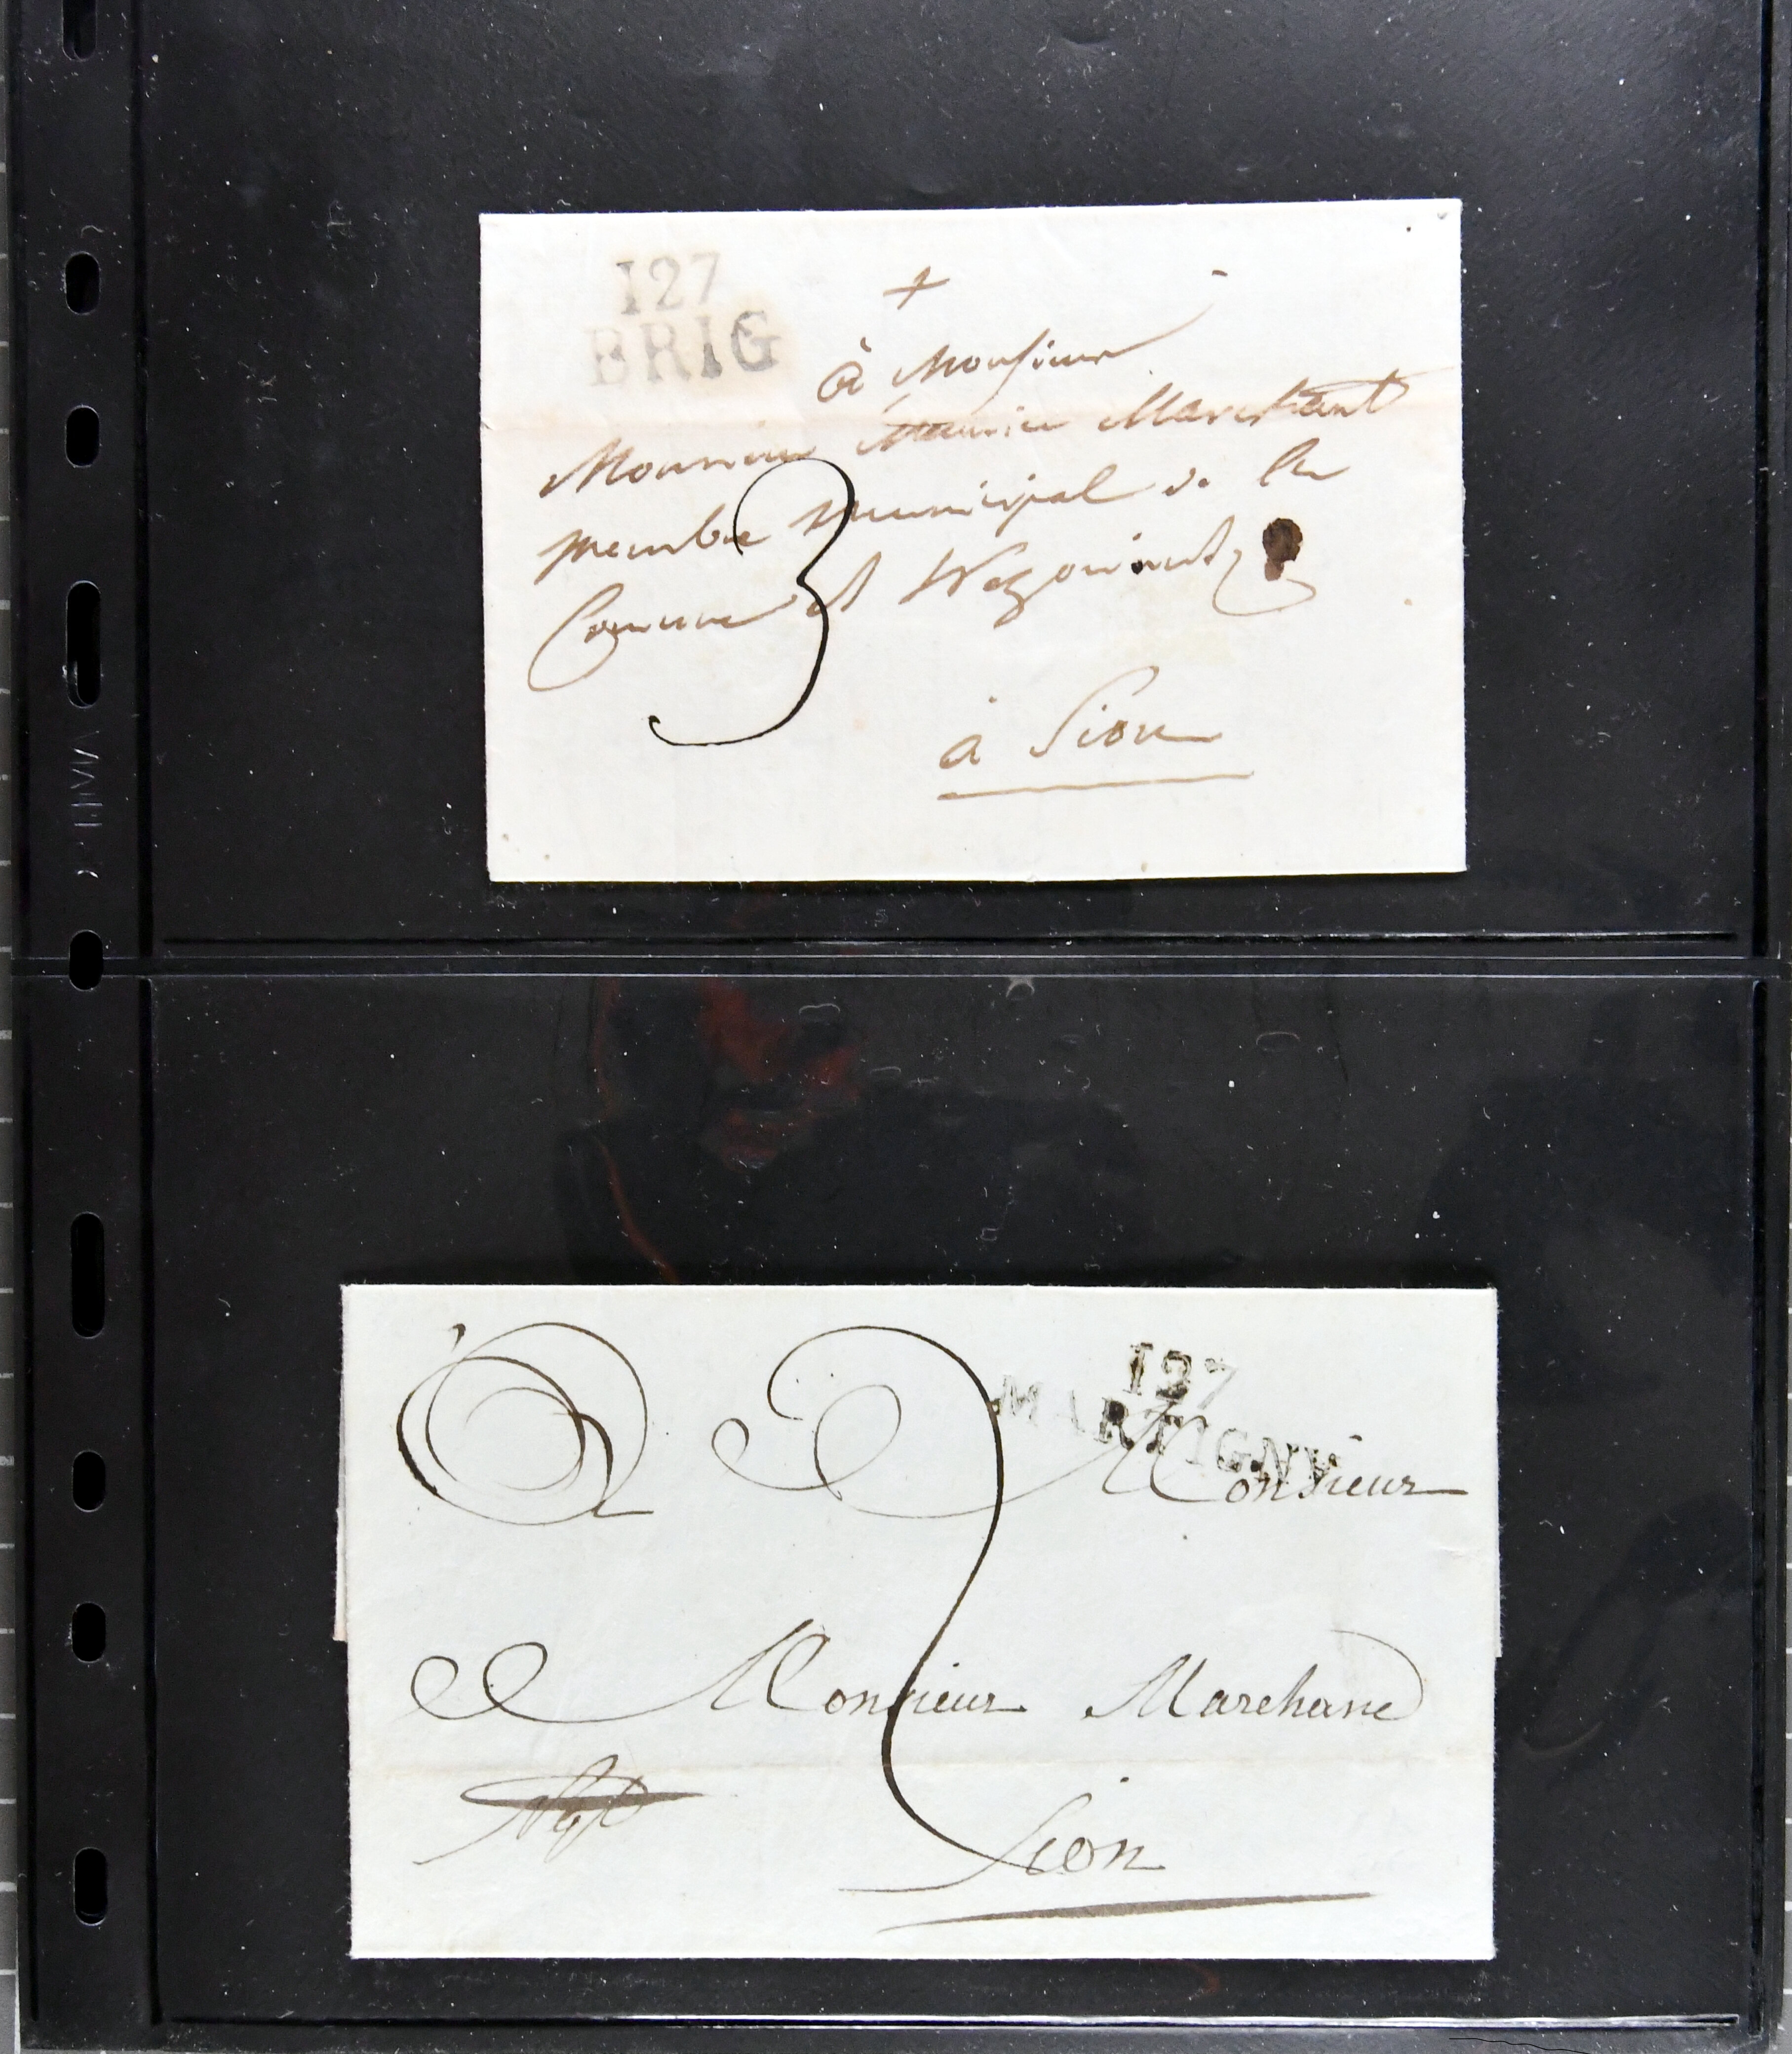 127
BRIG
+
à Monsieur
Monsieur Maurice Marchand
Membre Municipal de la
Comune et Negotiant
3
à Sion
127
MARTIGNY
A Monsieur
2
Monsieur Marchand
Sion